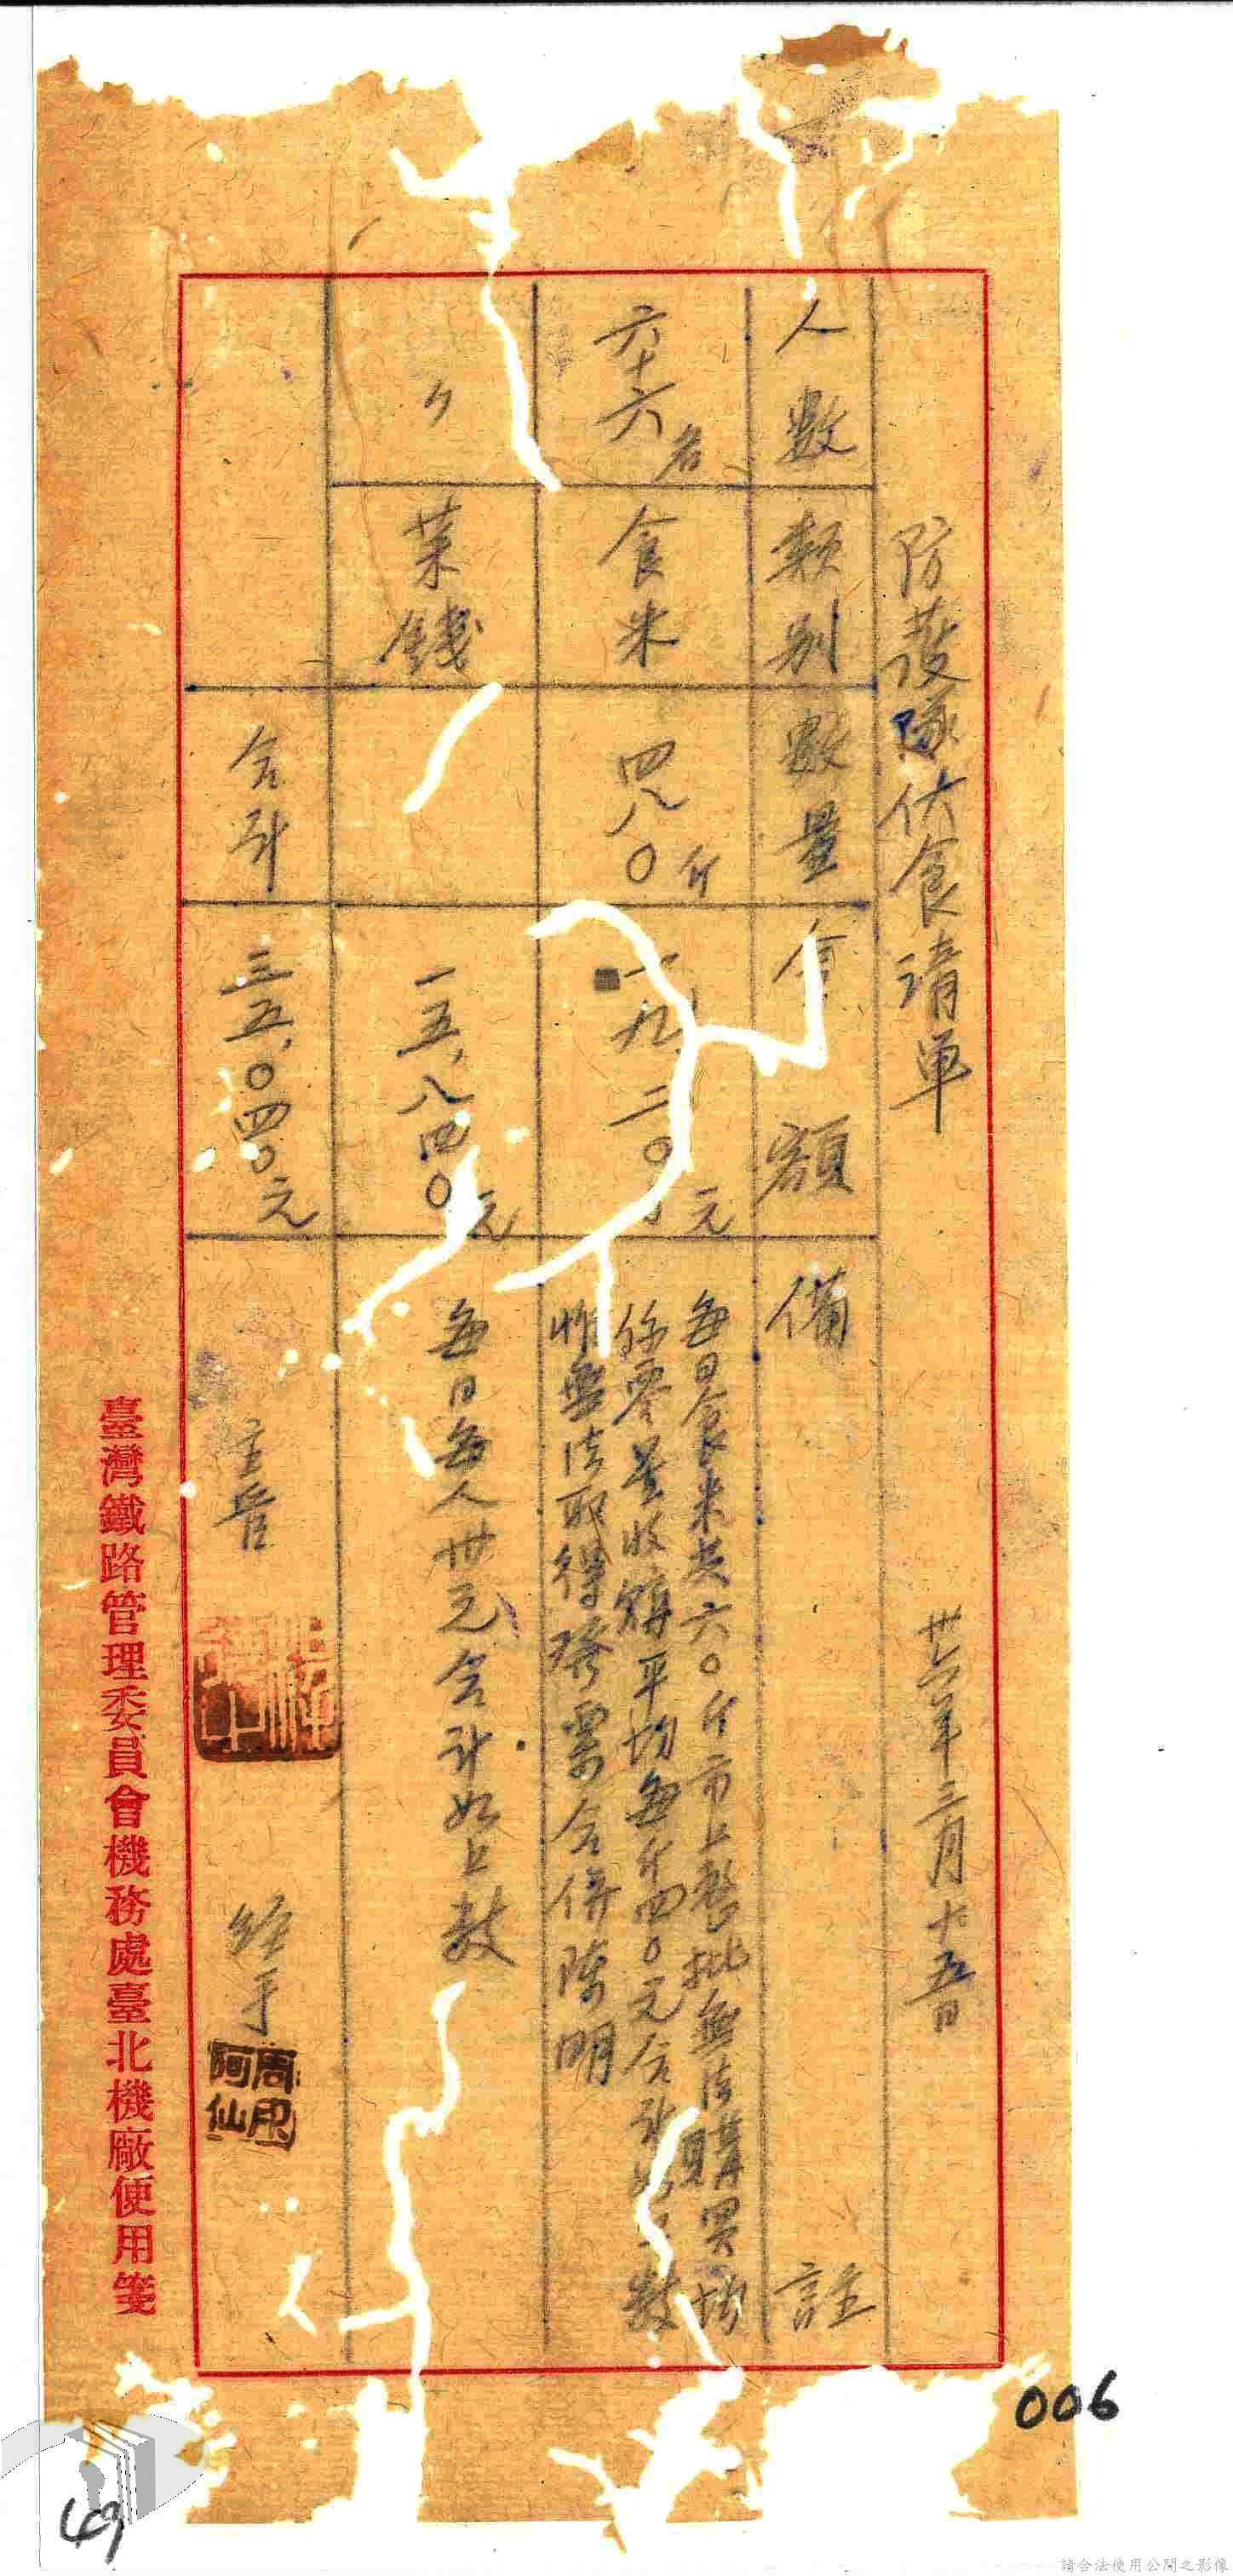 防護隊伙食請單
卅六年三月十五日
人數 類別 數量 金額 備註
六十六名 食米 四八〇斤 一九、二〇〇元
每日食米是六〇斤市上整批無法購買均
係零星收購平均每斤四〇元合計如上數
惟無法取得發票合併陳明
〃 菜錢 一五、八四〇元 每日每人卅元合計如上數
合計 三五、〇四〇元
主管
經手
周阿仙印
臺灣鐵路管理委員會機務處臺北機廠便用箋
006
49
請合法使用公開之影像